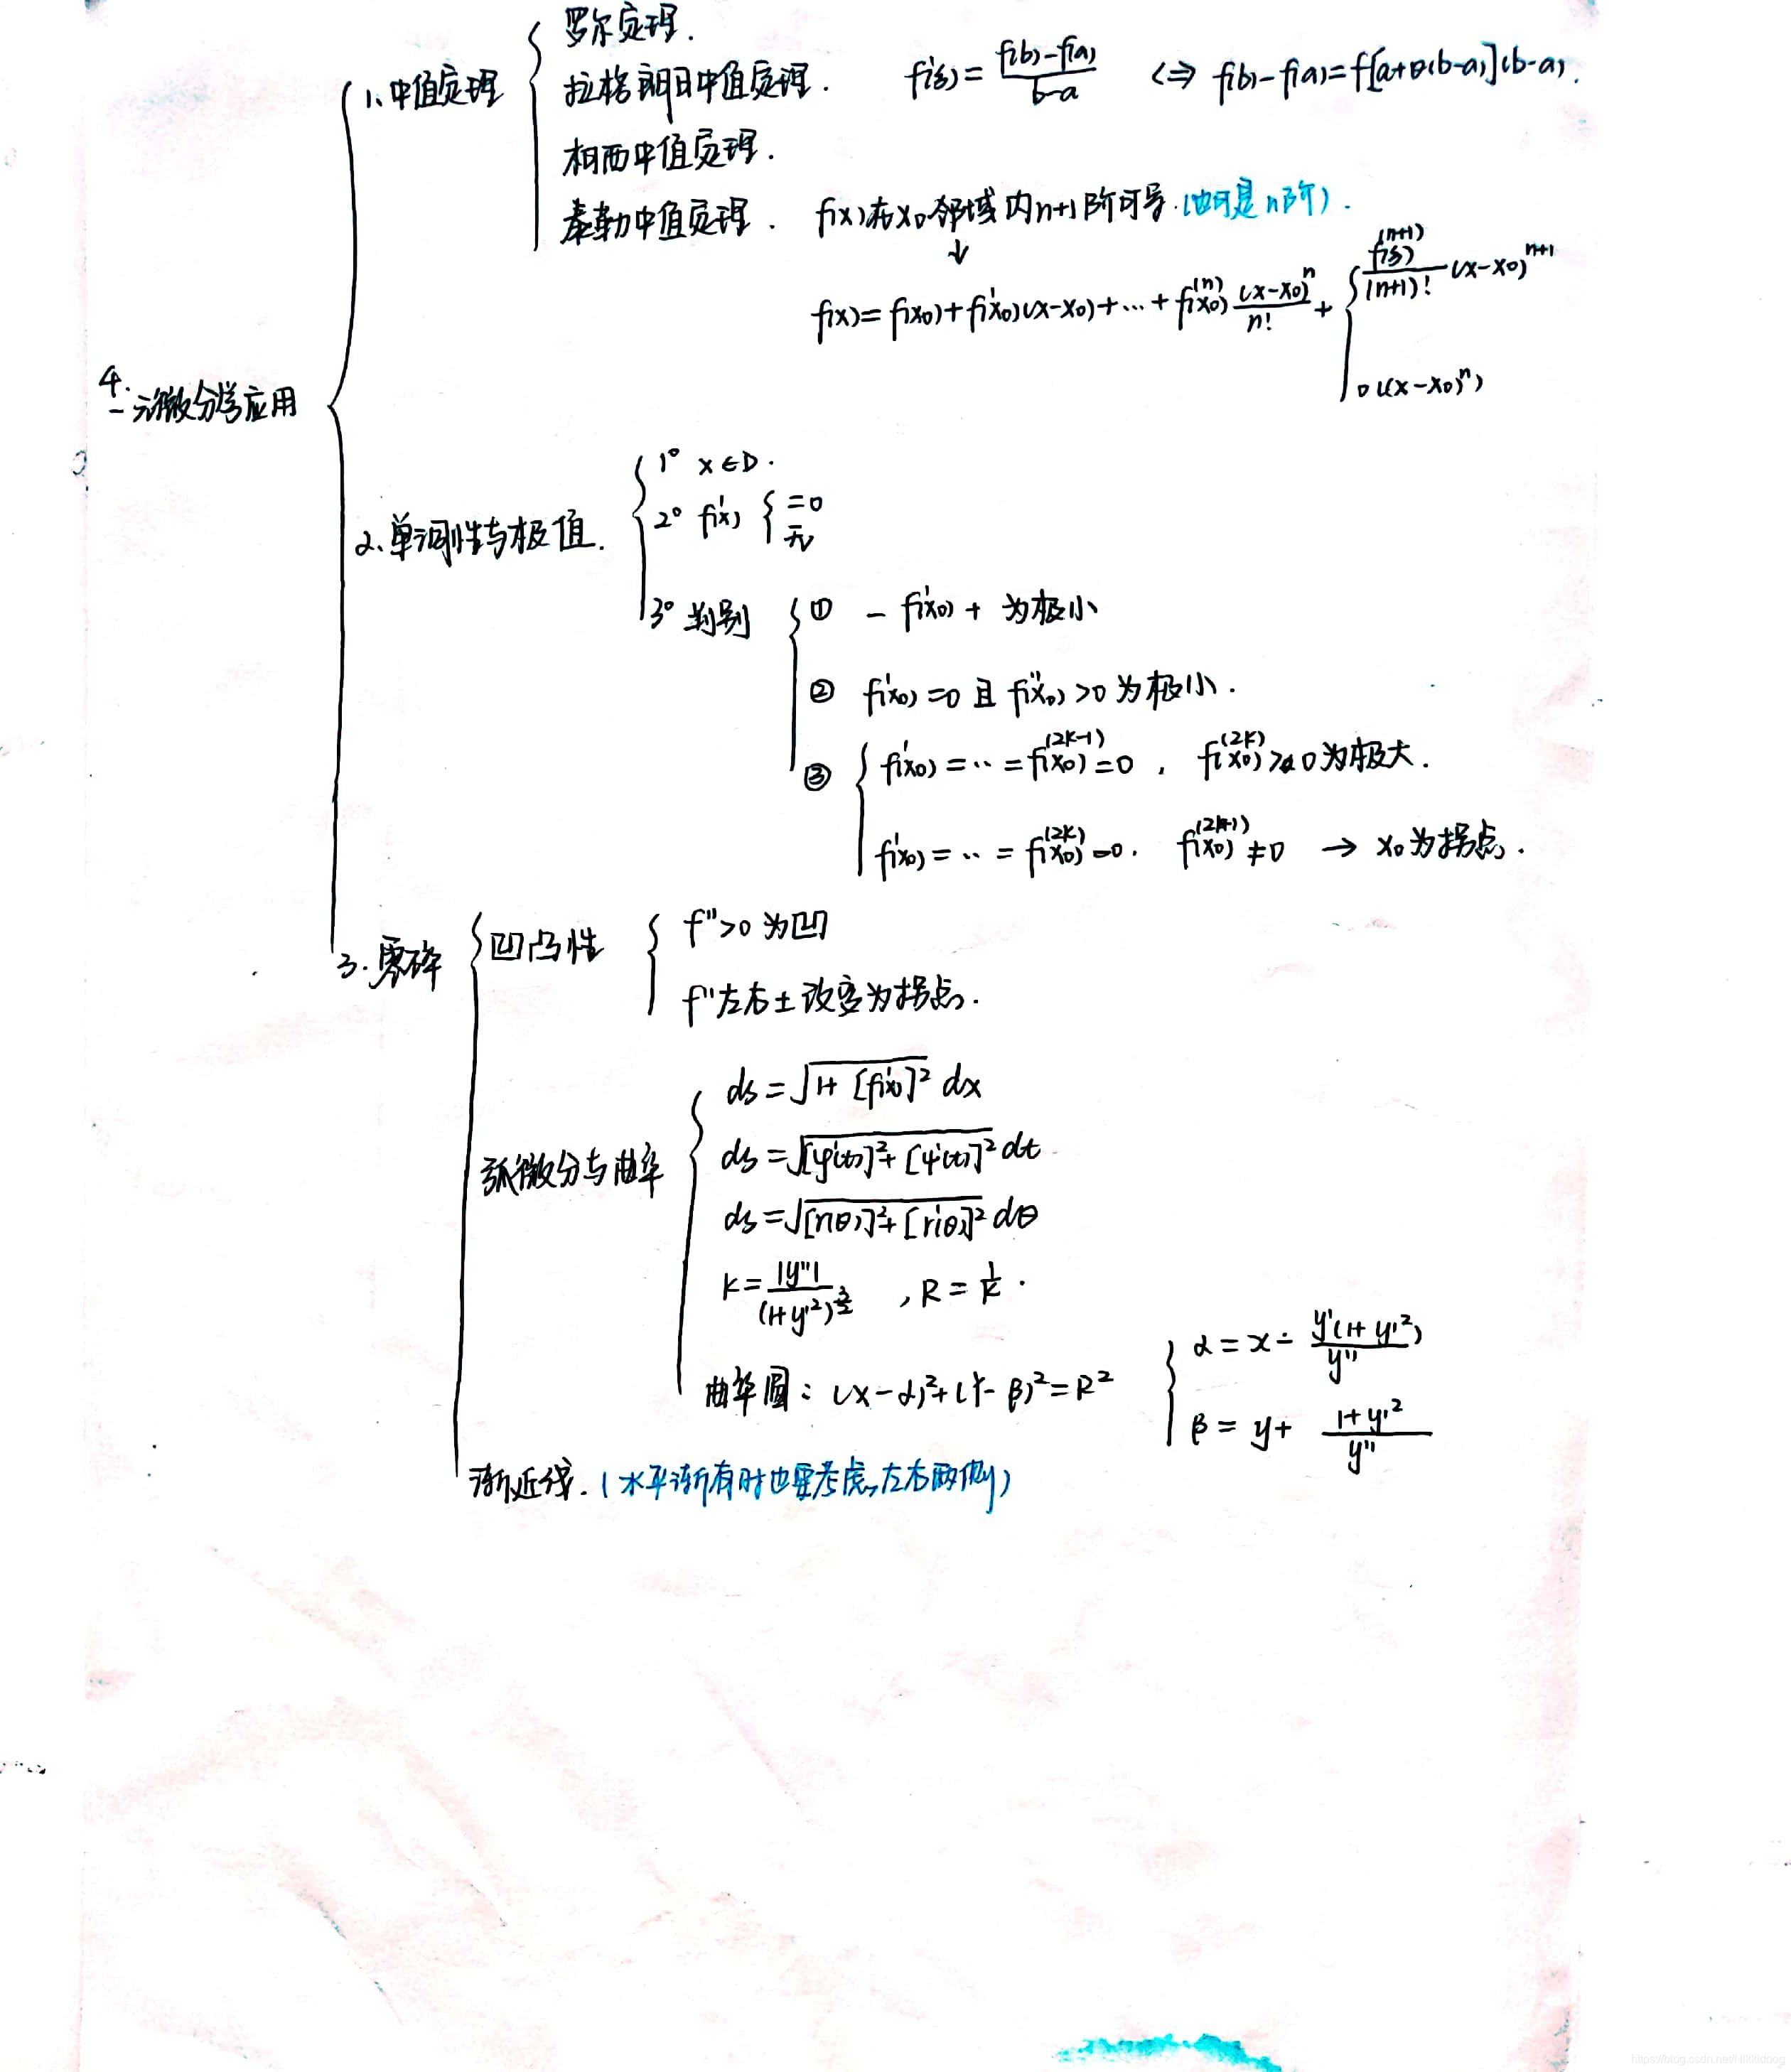 4.
一元微分学应用
1、中值定理
罗尔定理.
拉格朗日中值定理. f'(ξ)=\frac{f(b)-f(a)}{b-a} <=> f(b)-f(a)=f[a+θ(b-a)](b-a).
柯西中值定理.
泰勒中值定理. f(x)在x₀邻域内n+1阶可导.(也可是n阶).
↓
f(x)=f(x₀)+f'(x₀)(x-x₀)+…+f^{(n)}(x₀)\frac{(x-x₀)^n}{n!}+{\frac{f^{(n+1)}(ξ)}{(n+1)!}(x-x₀)^{n+1}
o((x-x₀)^n)
2、单调性与极值.
1° x∈D.
2° f'(x) { =0
无
3° 判别
① - f'(x₀) + 为极小
② f'(x₀)=0 且 f''(x₀)>0 为极小.
③ f'(x₀)=…=f^{(2k-1)}(x₀)=0, f^{(2k)}(x₀) 0为极大.
f'(x₀)=…=f^{(2k)}(x₀)=0. f^{(2k+1)}(x₀)≠0 → x₀为拐点.
3.零碎
凹凸性
f''>0 为凹
f''左右±改变为拐点.
弧微分与曲率
ds=\sqrt{1+[f'(x)]²} dx
ds=\sqrt{[φ'(t)]²+[ψ'(t)]²} dt
ds=\sqrt{[r(θ)]²+[r'(θ)]²} dθ
k=\frac{|y''|}{(1+y'²)^{\frac{3}{2}}} , R=\frac{1}{k}.
曲率圆: (x-α)²+(Y-β)²=R²
α=x-\frac{y'(1+y'²)}{y''}
β=y+\frac{1+y'²}{y''}
渐近线.(水平渐有时也要考虑左右两侧)